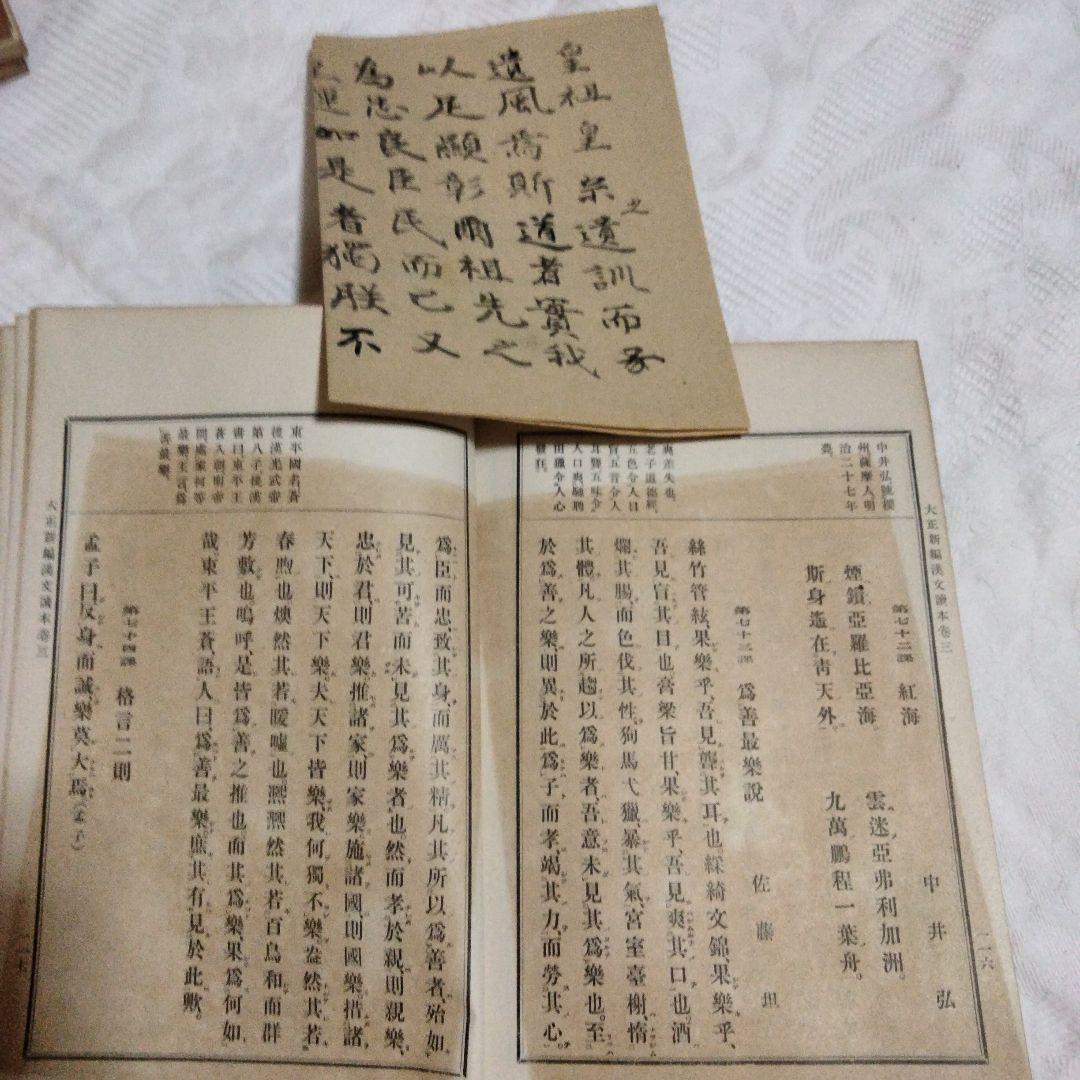 皇祖皇宗之遺訓而子
遺風爲斯道者實我
以足顯彰爾祖先之
為忠良臣民而已又
是者獨朕不
大正新編漢文讀本卷三
一一六
中井弘號櫻
州薩摩人明
治二十七年
薨。
第七十二課　紅海　中井弘
煙鎖亞羅比亞海。　雲迷亞弗利加洲。
斯身遙在靑天外。　九萬鵬程一葉舟。
爽差失也。
老子道德經、
五色令人目
盲五音令人
耳聾五味令
人口爽馳騁
田獵令人心
發狂。
第七十三課　爲善最樂說　佐藤坦
絲竹管絃、果樂乎、吾見聾其耳也綵綺文錦、果樂乎、
吾見盲其目也膏粱旨甘、果樂乎、吾見爽其口也、酒
爛其腸、而色伐其性、狗馬弋獵、暴其氣、宮室臺榭、惰
其體凡人之所趨以爲樂者、吾意未見其爲樂也。至
於爲善之樂、則異於此爲子而孝竭其力、而勞其心、
東平國名蒼
後漢光武帝
第八子後漢
書曰東平王
蒼入朝明帝
問處家何等
最樂王言爲
善最樂。
爲臣而忠、致其身、而厲其精凡其所以爲善者、殆如
見其可苦而未見其爲樂者也然而孝於親、則親樂、
忠於君、則君樂推諸家、則家樂施諸國、則國樂措諸
天下、則天下樂夫天下皆樂、我何獨不樂盎然其若
春煦也燠然其若暖噓也熙熙然其若百鳥和而群
芳敷也嗚呼、是皆爲善之推也而其爲樂果爲何如
哉、東平王蒼、語人曰、爲善最樂、庶其有見於此歟。
第七十四課　格言二則
孟子曰、反身而誠、樂莫大焉。（孟子）
大正新編漢文讀本卷三